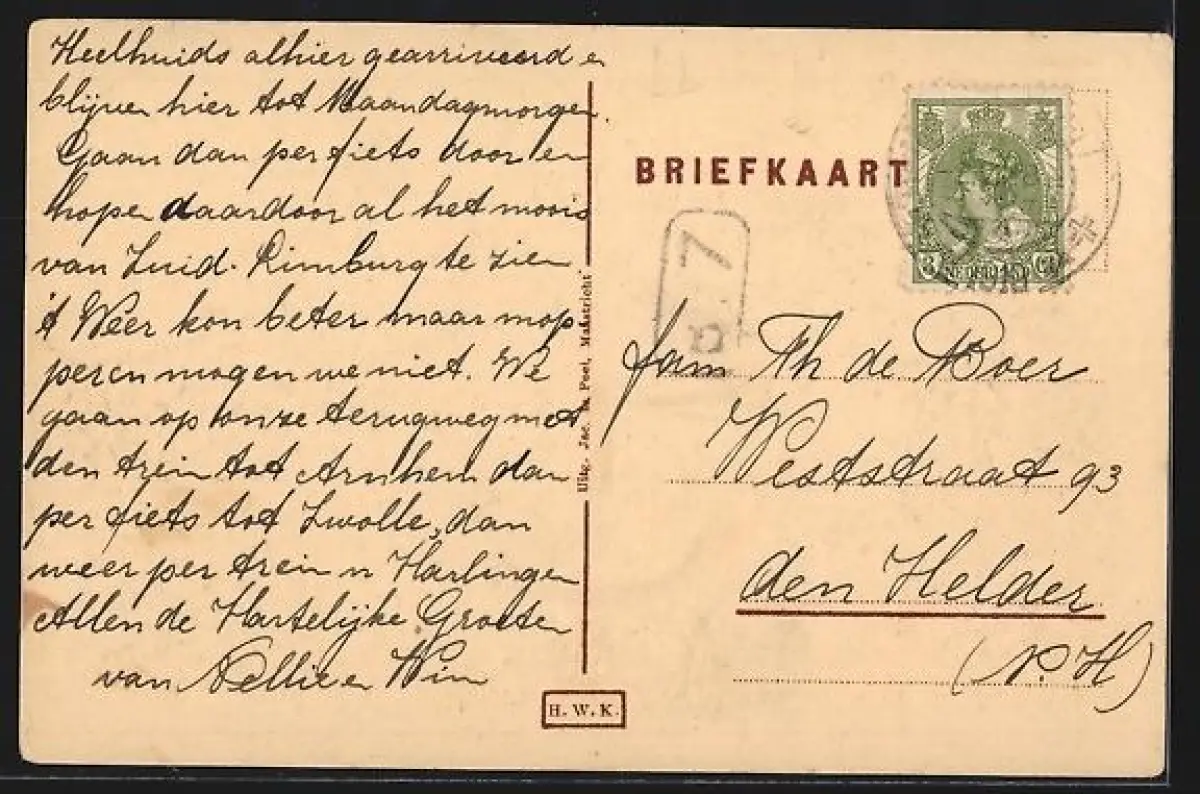 Heelhuids alhier gearriveerd en
blijven hier tot Maandagmorgen.
Gaan dan per fiets door en
hopen daardoor al het moois
van Zuid-Limburg te zien
't Weer kon beter maar mop
peren mogen we niet. We
gaan op onze terugweg met
den trein tot Arnhem dan
per fiets tot Zwolle, dan
weer per trein n Harlingen
Allen de Hartelijke Groeten
van Nellie en Wim
Uitg. Jac. M. Poel, Maastricht
H. W. K.
BRIEFKAART
3 NEDERLAND CT
7
fam Th de Boer
Weststraat 93
den Helder
(N.H)